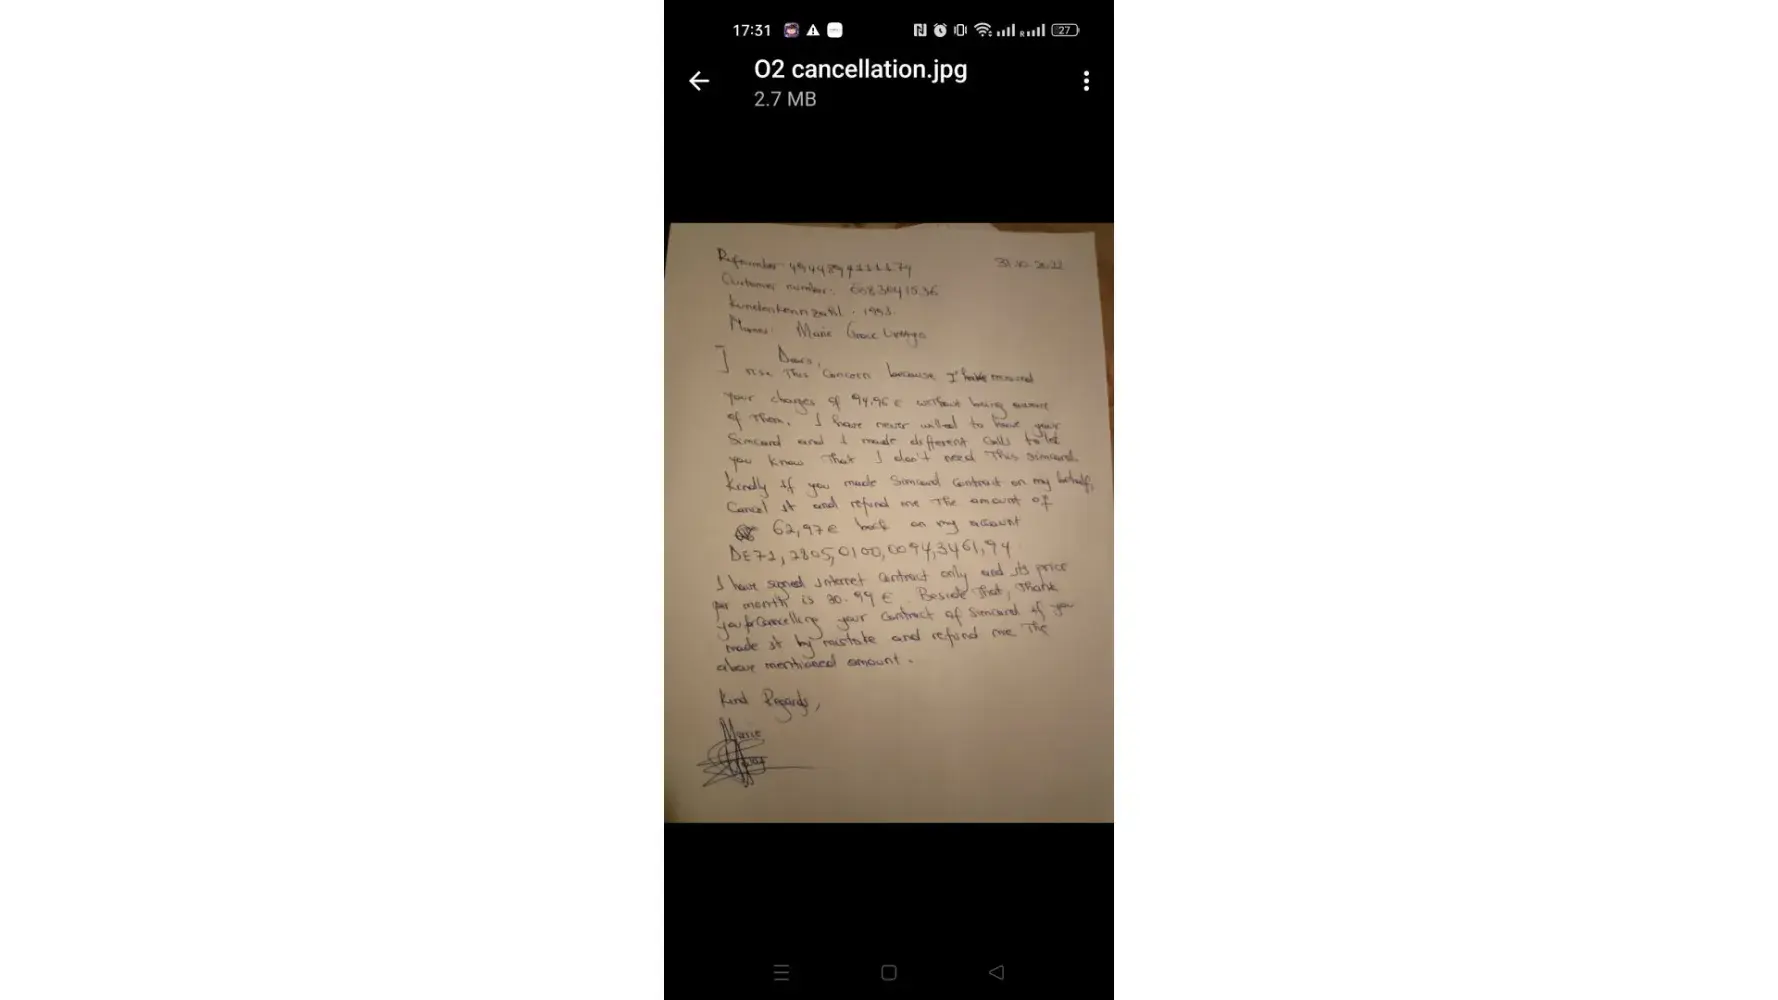 17:31
27
O2 cancellation.jpg
2.7 MB
31.10.2022
Refnumber 4944894111174
Customer number: 6083041536
Kundenkennzahl: 1953.
Names: Marie Grace
Dears,
I rise This concern because I have received
your charges of 94.96 € without being aware
of Them. I have never willed to have your
Simcard and I made different calls to let
you know That I don't need This simcard.
Kindly if you made Simcard contract on my behalf,
Cancel it and refund me The amount of
62,97 € back on my account
DE71,2805,0100,0094,3461,94
I have signed internet contract only and its price
per month is 30.99 €. Beside That, Thank
you for Cancelling your contract of Simcard if you
made it by mistake and refund me The
above mentioned amount.
Kind Regards,
Marie